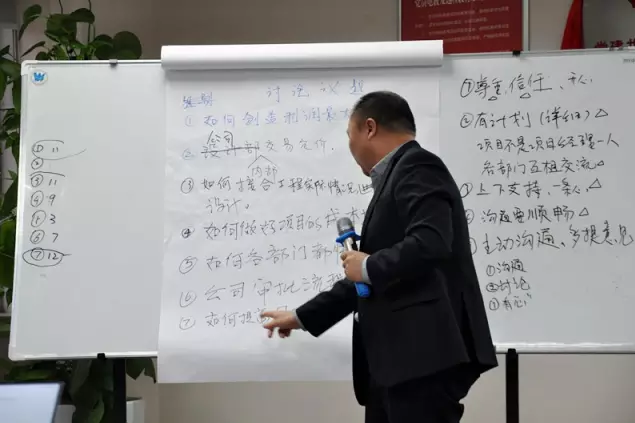 ① 11
②
③ 11
④ 9
⑤ 3
⑥ 7
⑦ 12
讨论议题
① 如何创造利润最大
公司
② 设计部交易定价
内部
③ 如何结合工程实际情况进
设计。
④ 如何做好项目的成本
⑤ 如何各部门都
⑥ 公司审批流程
⑦ 如何提
①尊重、信任、
②有计划(详细)△
项目不是项目经理一人
各部门互相交流△
③上下支持、一条心△
④沟通要顺畅△
主动沟通、多提意见
①沟通
②讨论